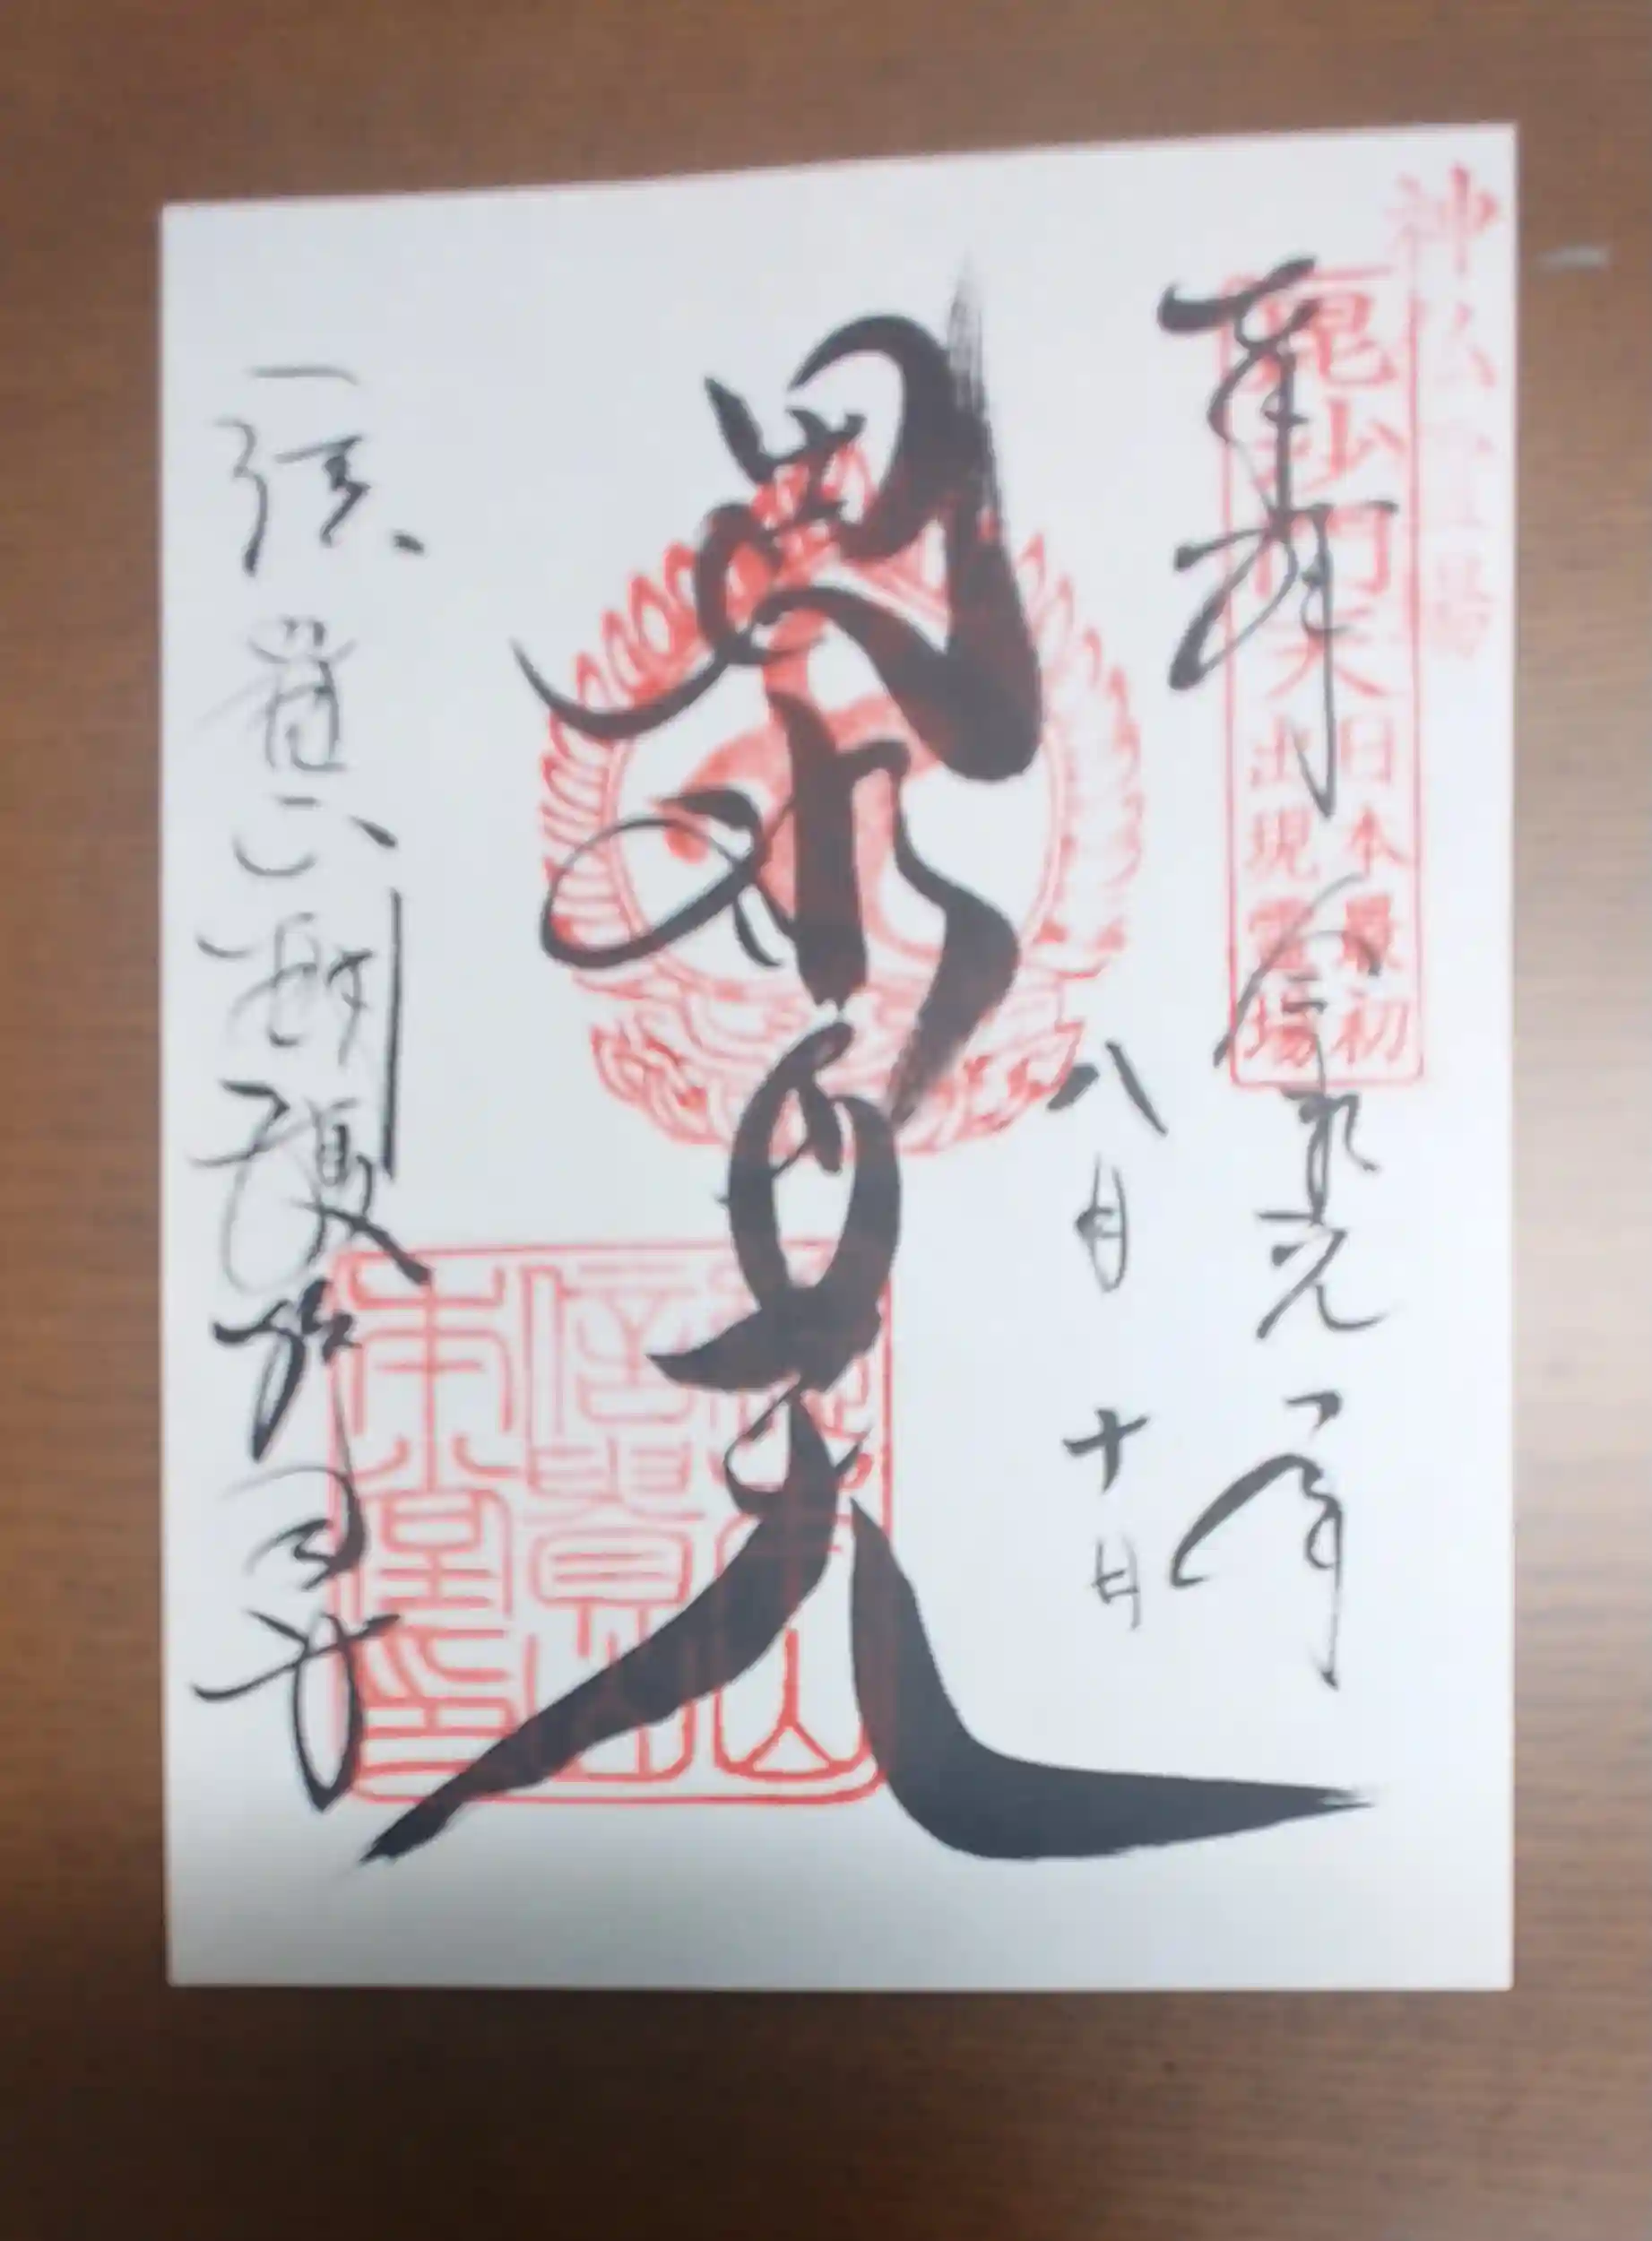 神仏霊場
毘沙門天
日本最初
出現霊場
奉拝 令和元年
八月十日
毘沙門天
信貴山朝護孫子寺
信貴山
本堂印